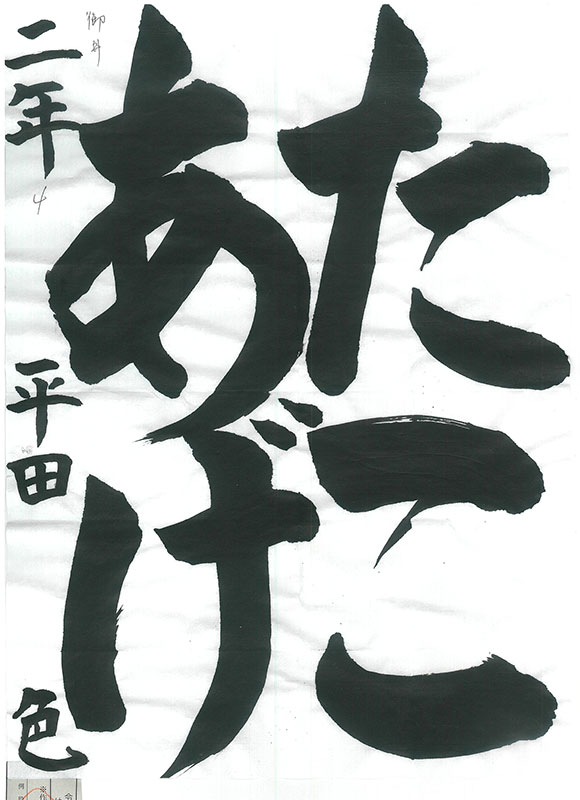 たこ
あげ
二年 平田 色
4